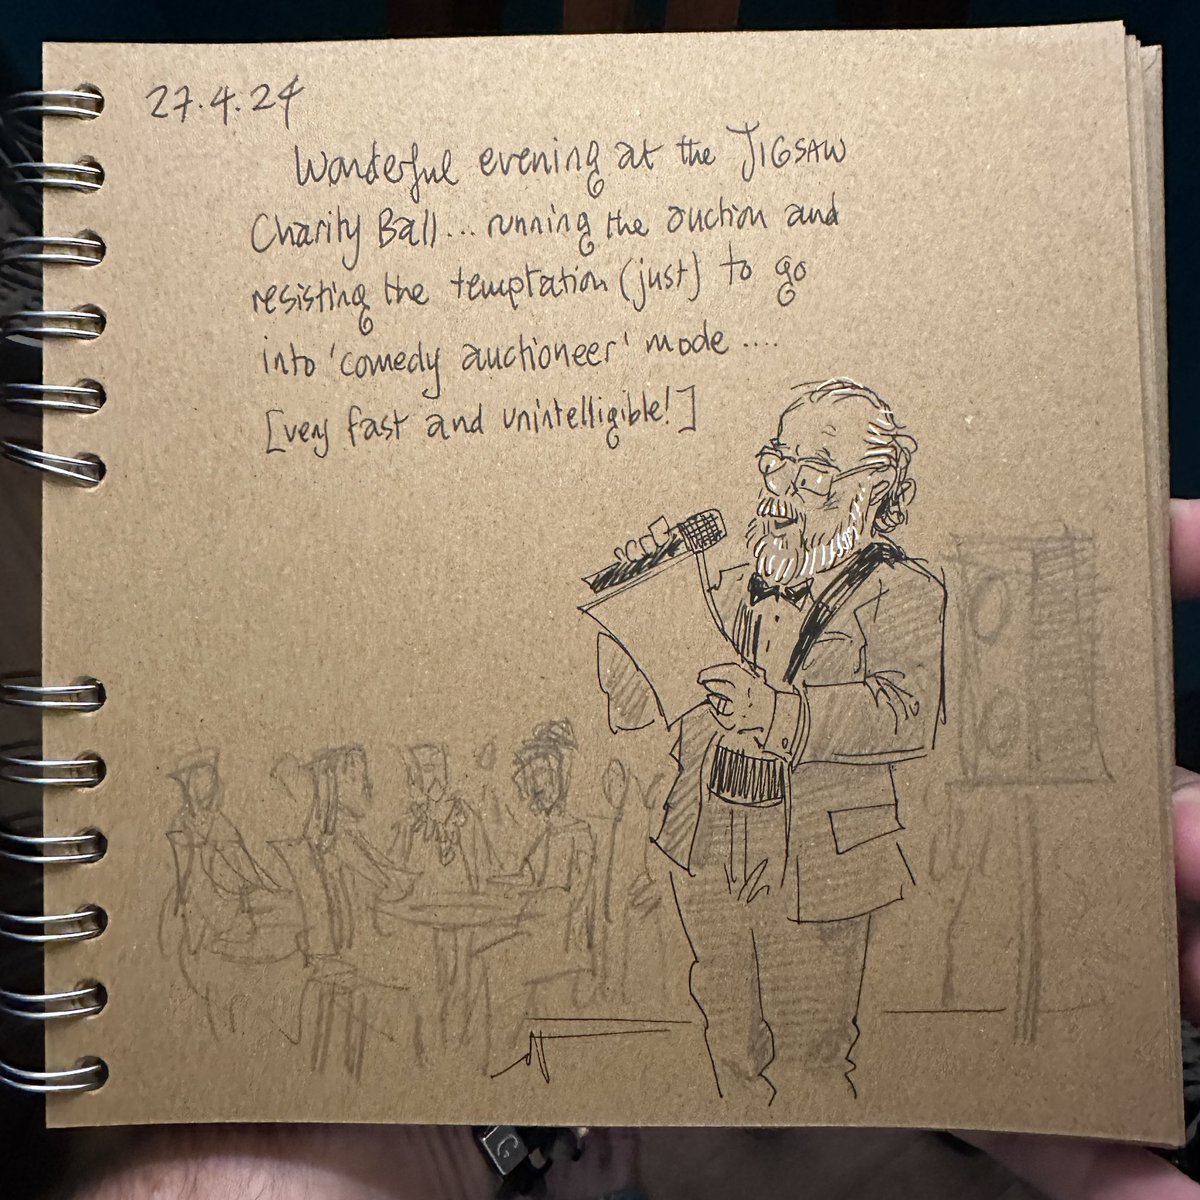 27.4.24
Wonderful evening at the JIGSAW
Charity Ball... running the auction and
resisting the temptation (just) to go
into 'comedy auctioneer' mode ....
[very fast and unintelligible!]
G